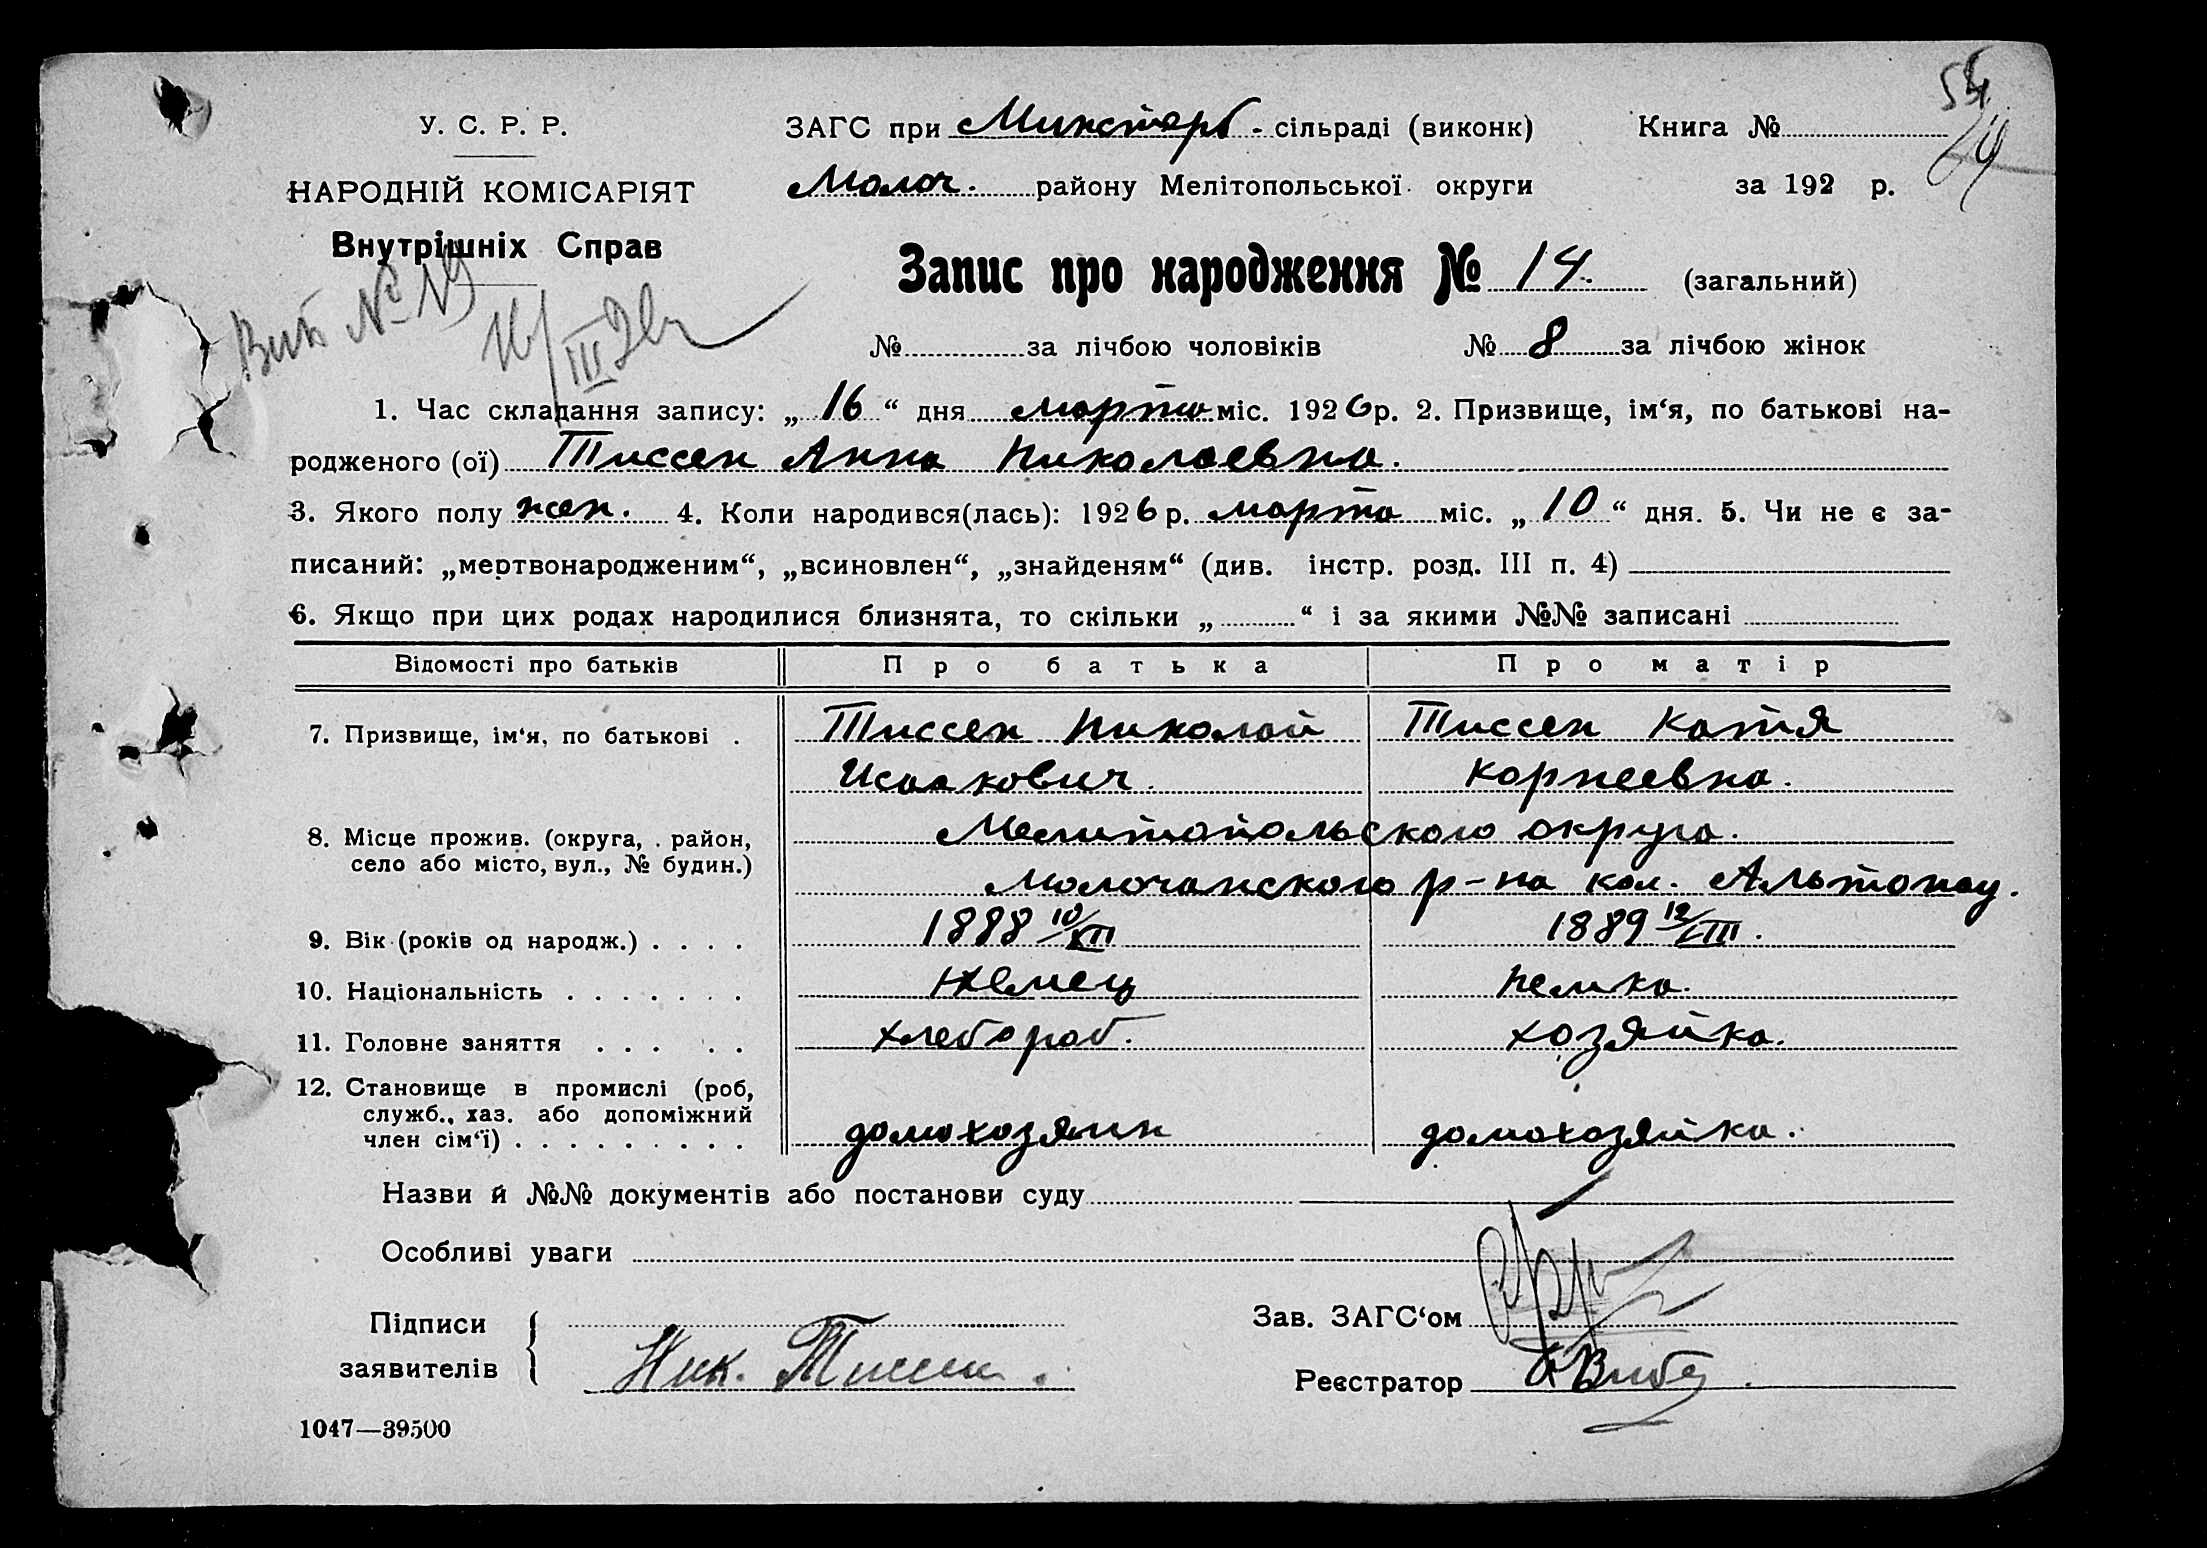 54
24
У. С. Р. Р.
НАРОДНІЙ КОМІСАРІЯТ
Внутрішніх Справ
ЗАГС при Минстерб - сільраді (виконк)
Молоч. району Мелітопольської округи
Книга №
за 192 р.
Вип № 19
16/III 26
Запис про народження № 14. (загальний)
№ за лічбою чоловіків № 8 за лічбою жінок
1. Час складання запису: „ 16 “ дня марта міс. 1926 р. 2. Призвище, ім‘я, по батькові на-
родженого (ої) Тиссен Анна Николаевна.
3. Якого полу жен. 4. Коли народився(лась): 1926 р. марта міс. „ 10 “ дня. 5. Чи не є за-
писаний: „мертвонародженим“, „всиновлен“, „знайденям“ (див. інстр. розд. III п. 4)
6. Якщо при цих родах народилися близнята, то скільки „ “ і за якими №№ записані
Відомості про батьків Про батька Про матір
7. Призвище, ім‘я, по батькові . Тиссен Николай Тиссен Катя
Исаакович. Корнеевна.
8. Місце прожив. (округа, . район, Мелитопольского округа.
село або місто, вул., № будин.) Молочанского р-на кол. Альтонау.
9. Вік (років од народж.) . . . . 1888 10/XII 1889 12/VIII.
10. Національність . . . . . . . Немец Немка.
11. Головне заняття . . . . . хлебороб. хозяйка.
12. Становище в промислі (роб,
служб., хаз. або допоміжний
член сім‘ї) . . . . . . . . . домохозяин домохозяйка.
Назви й №№ документів або постанови суду
Особливі уваги
Підписи
заявителів
Ник. Тиссен.
Зав. ЗАГС‘ом
Реєстратор
1047—39500